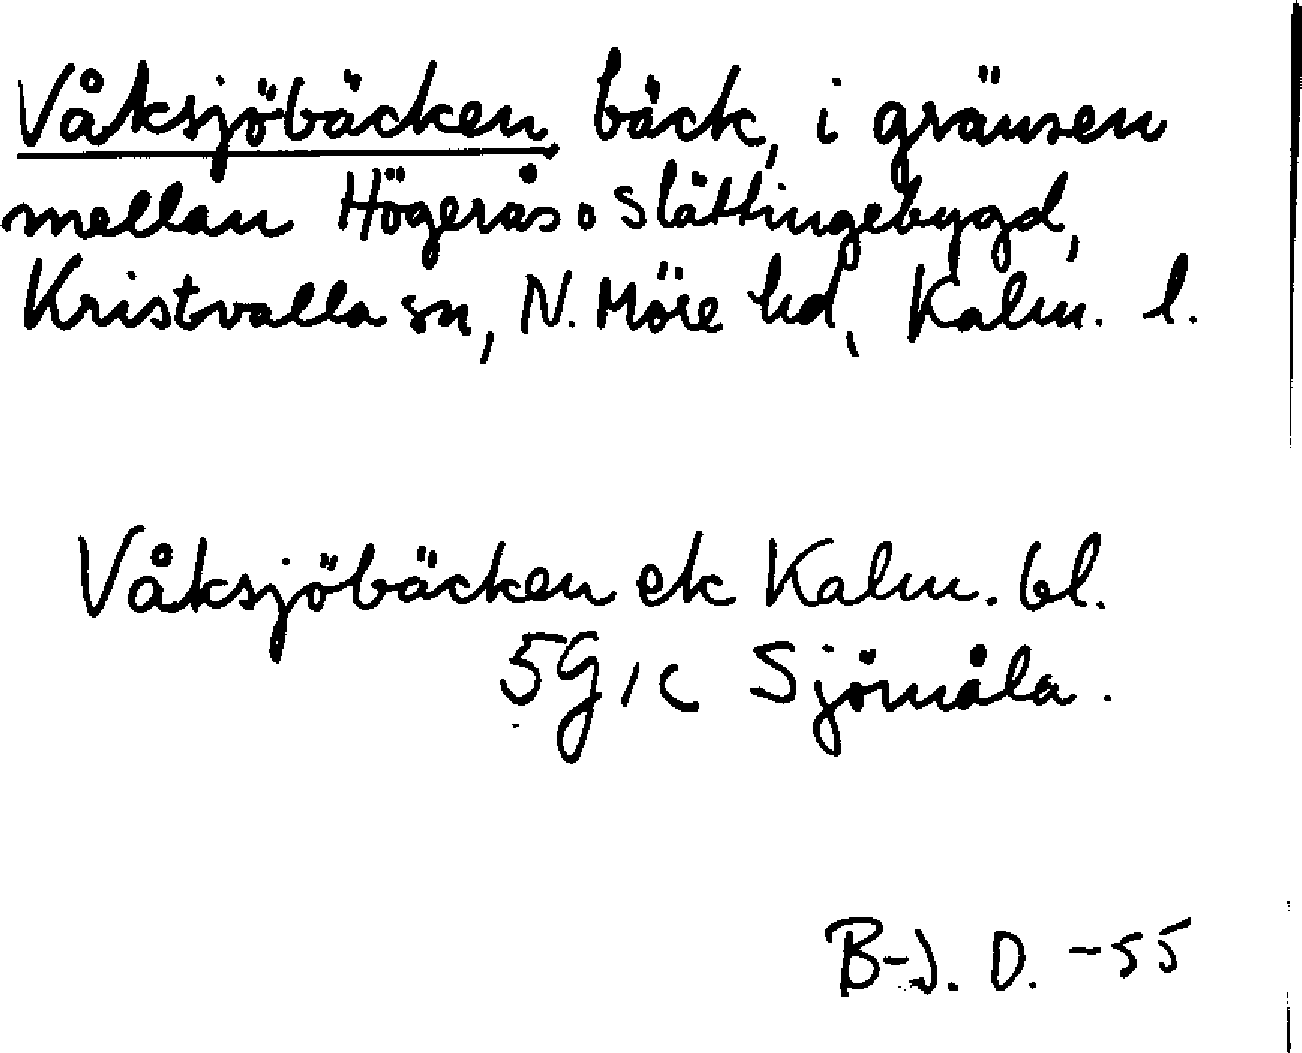 Våksjöbäcken, bäck, i gränsen
mellan Högerås o Slättingebygd,
Kristvalla sn, N. Möre hd, Kalm. l.
Våksjöbäcken ek Kalm. bl.
5G 1c Sjömåla.
B-J. D. -55